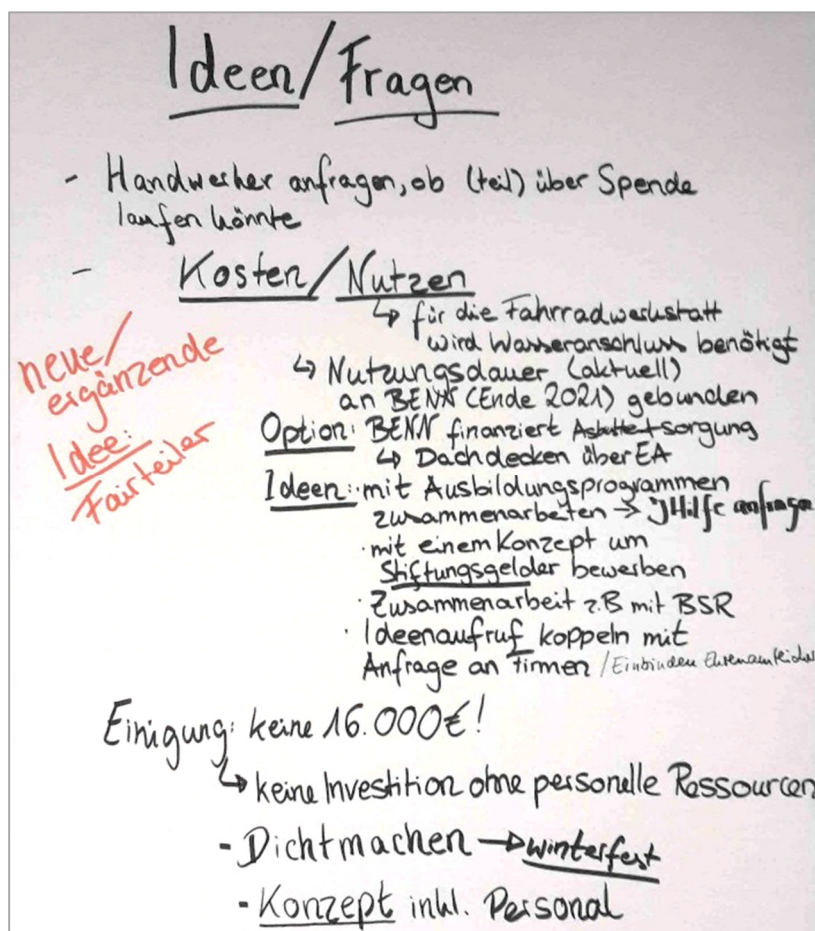 Ideen/Fragen
- Handwerker anfragen, ob (teil) über Spende
laufen könnte
- Kosten/Nutzen
↳ für die Fahrradwerkstatt
wird Wasseranschluss benötigt
↳ Nutzungsdauer (aktuell)
an BENN (Ende 2021) gebunden
Option: BENN finanziert sorgung
↳ Dachdecken über EA
Ideen: · mit Ausbildungsprogrammen
zusammenarbeiten → JHilfe anfragen
· mit einem Konzept um
Stiftungsgelder bewerben
· Zusammenarbeit z.B mit BSR
· Ideenaufruf koppeln mit
Anfrage an Firmen / Einbinden Ehrenamtlicher
neue/
ergänzende
Idee:
Fairteiler
Einigung: keine 16.000€!
↳ keine Investition ohne personelle Ressourcen
- Dichtmachen → winterfest
- Konzept inkl. Personal